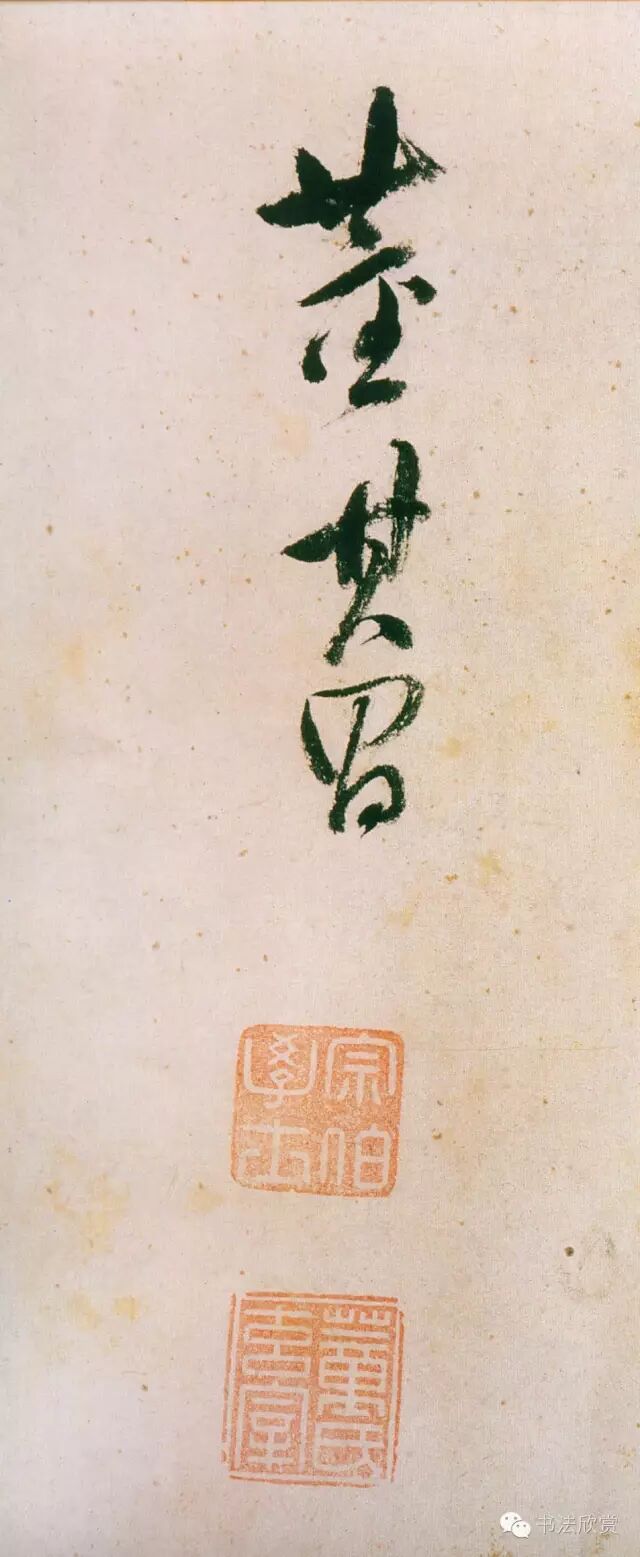 董其昌
宗伯
學士
董氏
玄宰
书法欣赏